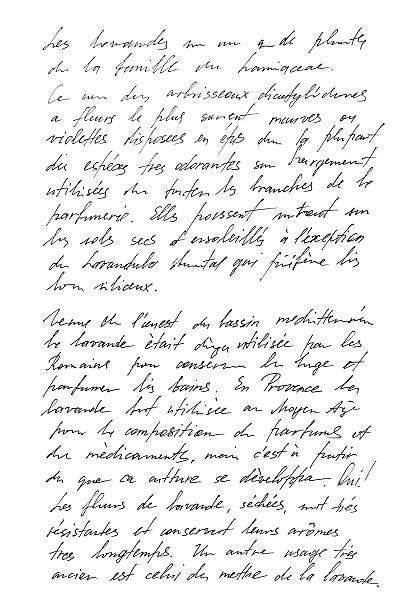 Les lavandes un de plantes
de la famille des Lamiaceae.
Ce sont des arbrisseaux dicotylédones
a fleurs le plus souvent mauves ou
violettes disposées en épis dont la plupart
des espèces tres odorantes sont largement
utilisées dans toutes les branches de la
parfumerie. Elles poussent surtout sur
les sols secs et ensoleillés à l'exception
de Lavandula qui préfère les
siliceux.
de l'ouest du bassin
la lavande était déja utilisée par les
Romains pour conserver le linge et
parfumer les bains. En Provence la
lavande fut utilisée au Moyen
pour la composition de parfums et
de médicaments, mais c'est à partir
du que sa culture se développa.
Les fleurs de lavande, séchées, sont très
résistantes et conservent leurs arômes
tres longtemps. Un autre usage très
ancien est celui de mettre de la lavande